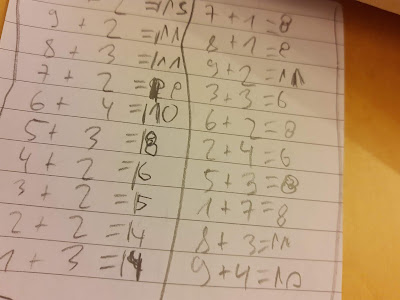 9 + 2 =111
8 + 3 =111
7 + 2 =
6 + 4 =110
5 + 3 =18
4 + 2 =16
3 + 2 =15
2 + 2 =14
1 + 3 =14
7 + 1 = 8
8 + 1 = 9
9 + 2 = 11
3 + 3 = 6
6 + 2 = 8
2 + 4 = 6
5 + 3 = 8
1 + 7 = 8
8 + 3 = 11
9 + 4 = 10